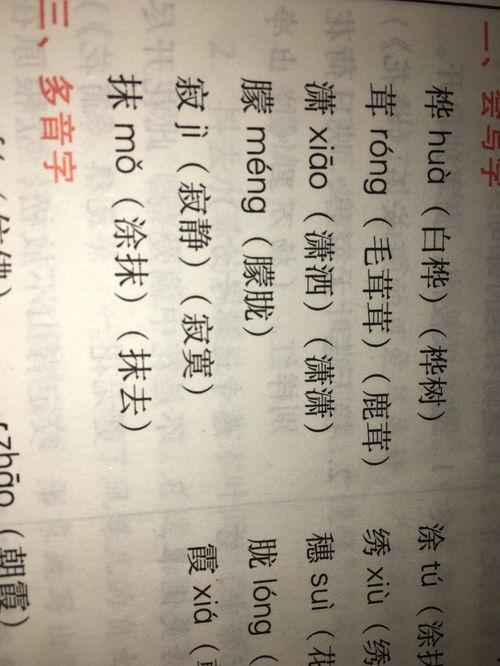 一、会写字
桦 huà（白桦）（桦树） 涂 tú（涂
茸 róng（毛茸茸）（鹿茸） 绣 xiù（绣
潇 xiāo（潇洒）（潇潇） 穗 suì（花
朦 méng（朦胧） 胧 lóng（
寂 jì（寂静）（寂寞） 霞 xiá（
抹 mǒ（涂抹）（抹去）
三、多音字
zhāo（朝霞）